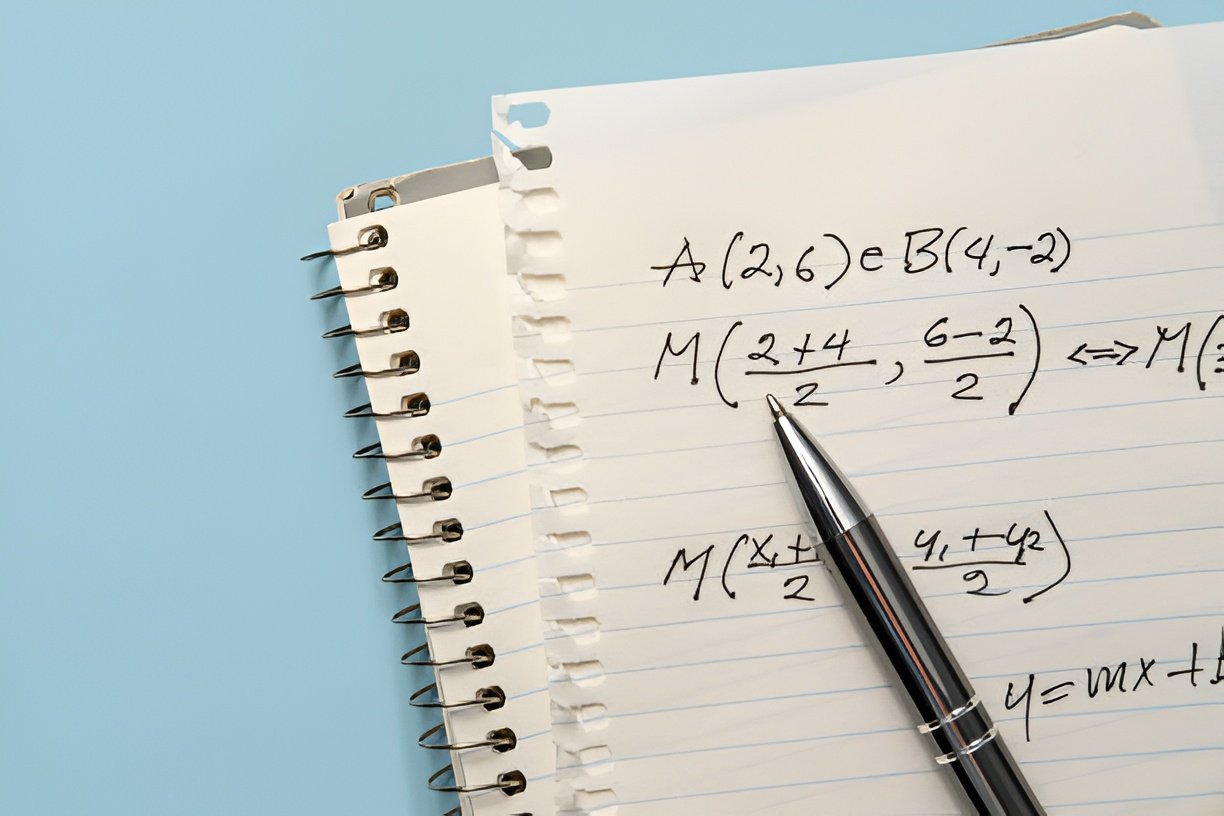 A(2,6) e B(4,-2)
M(2+4/2, 6-2/2) <=> M(
M(x₁+/2 y₁+y₂/2)
y=mx+